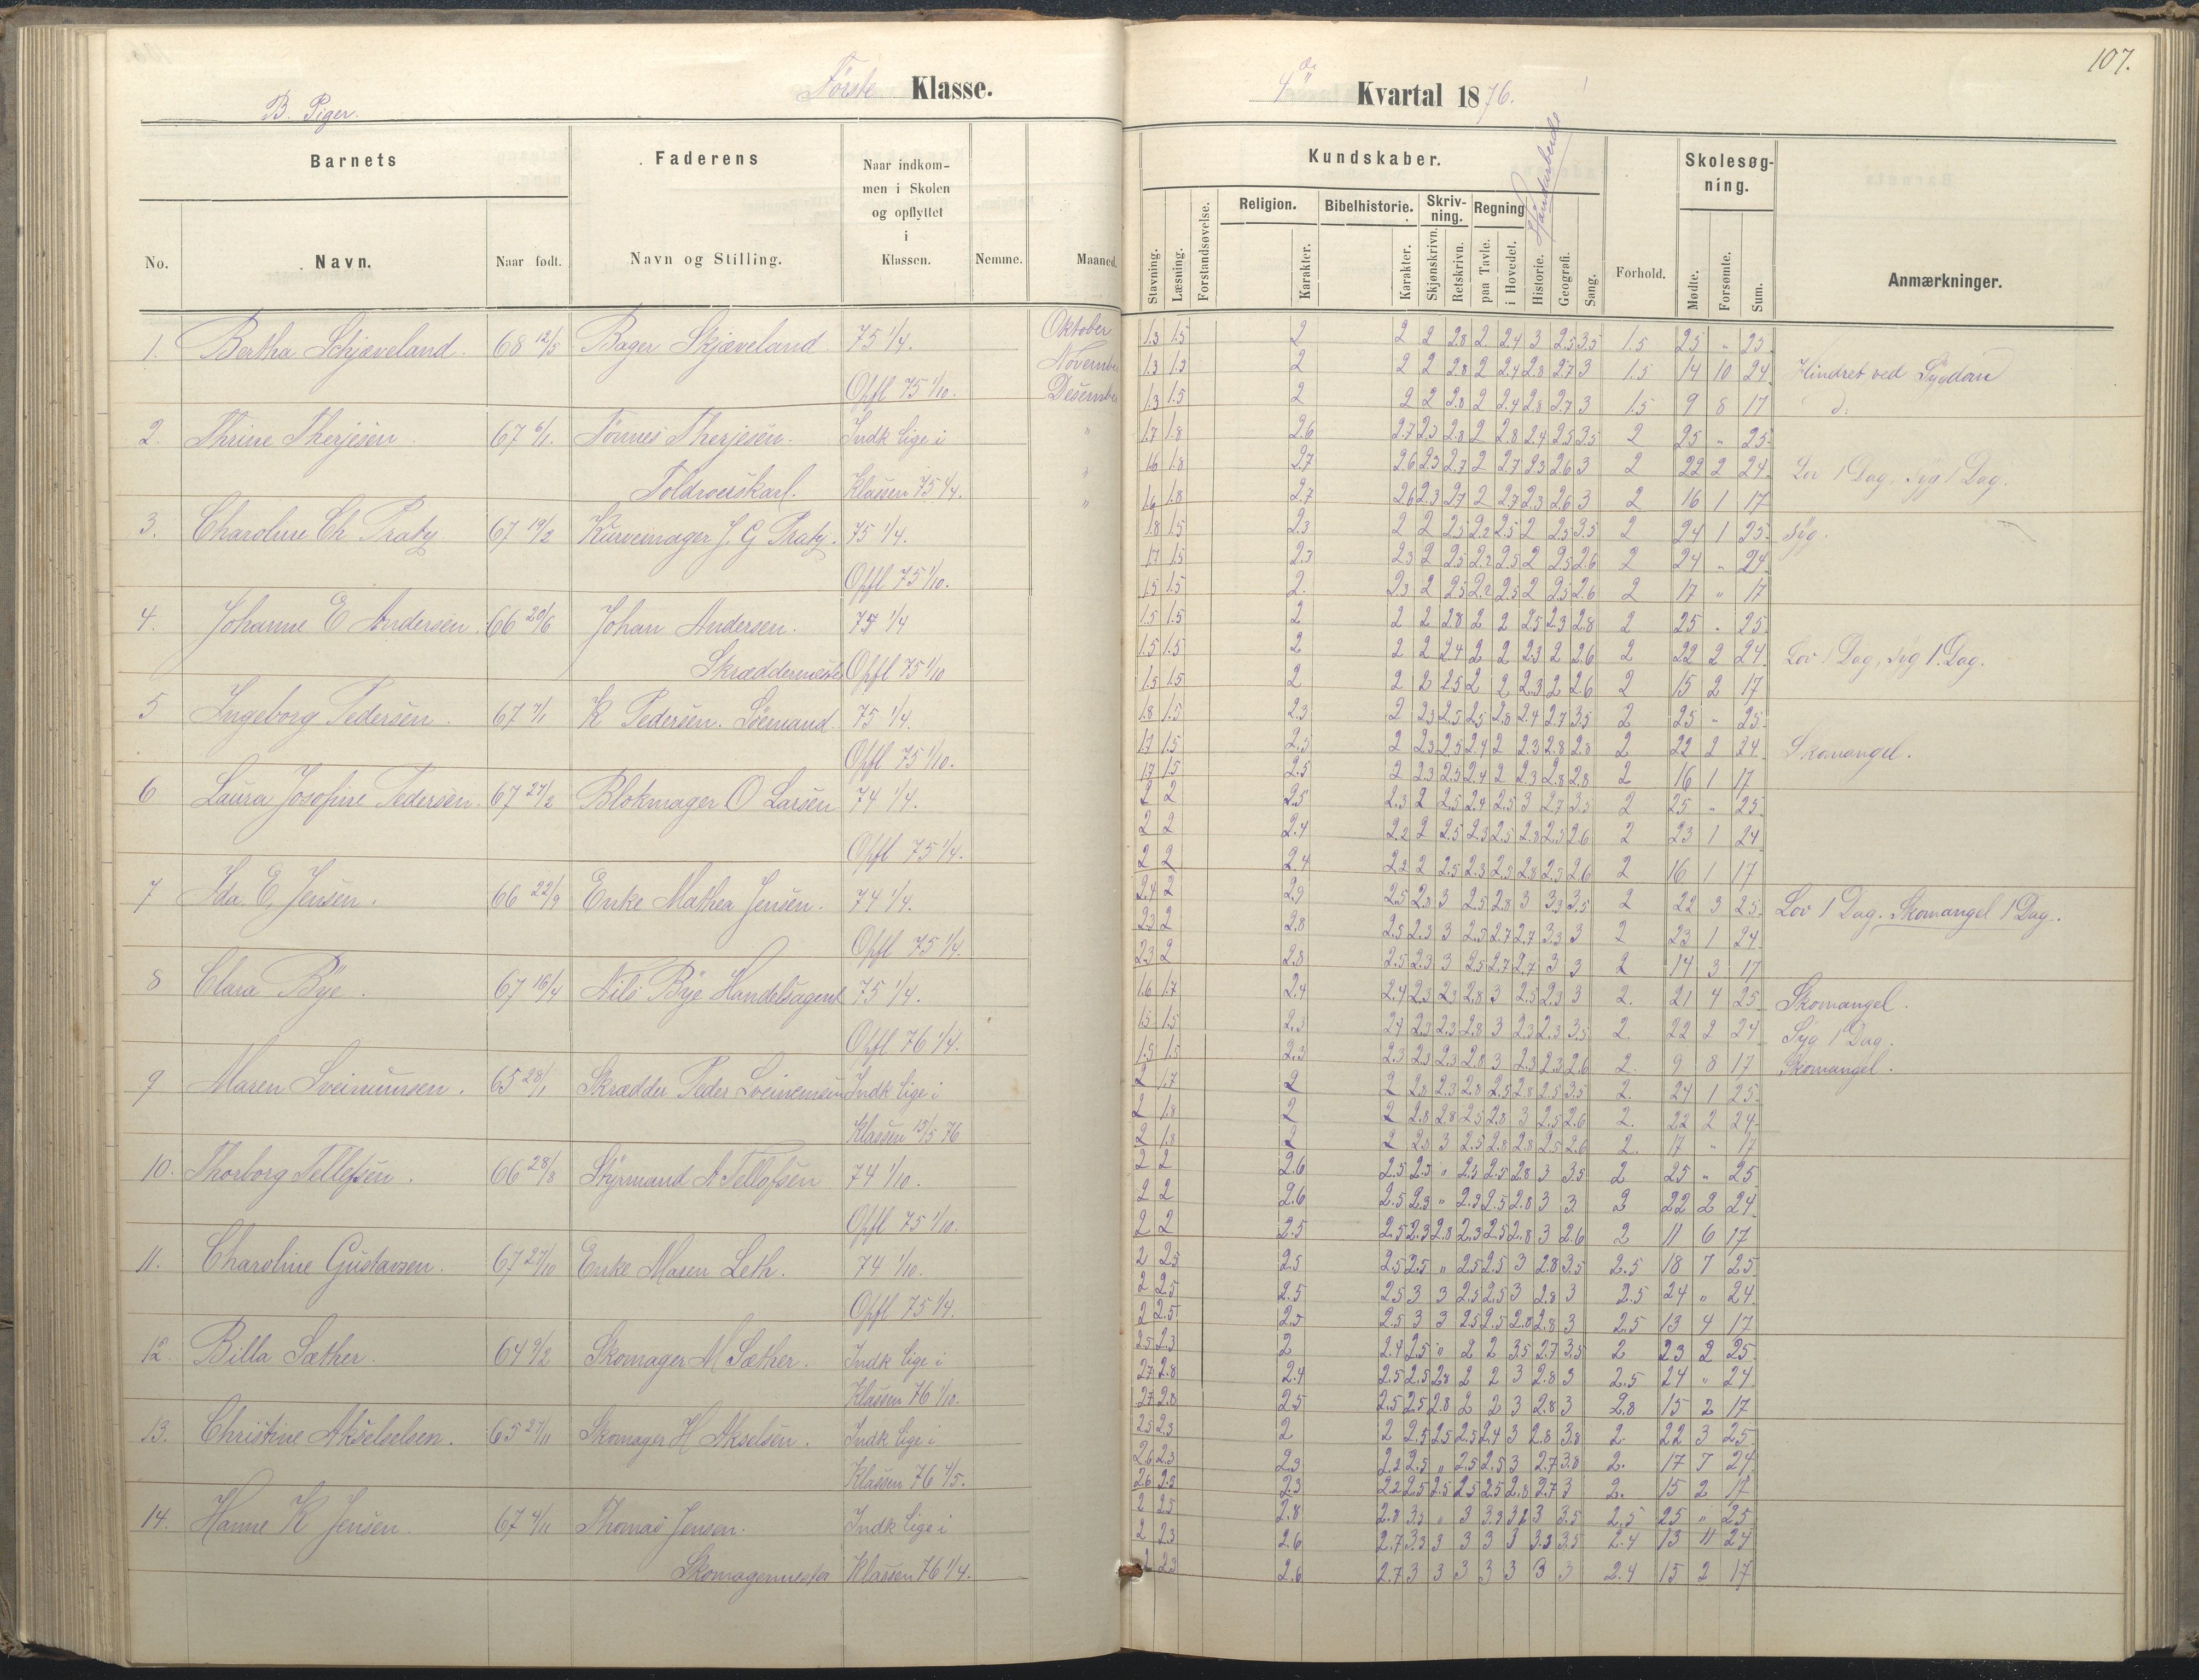 107.
Første Klasse.
4de Kvartal 1876.
B. Piger.
Barnets
Faderens
Naar indkom-
men i Skolen
og opflyttet
i
Klassen.
No.
Navn.
Naar født.
Navn og Stilling.
Nemme.
Maaned.
Kundskaber.
Haandarbeide
Skolesøg-
ning.
Stavning.
Læsning.
Forstandsøvelse.
Religion.
Bibelhistorie.
Skriv-
ning.
Regning
Karakter.
Karakter.
Skjønskrivn.
Retskrivn.
paa Tavle.
i Hovedet.
Historie.
Geografi.
Sang.
Forhold.
Mødte.
Forsømte.
Sum.
Anmærkninger.
1. Bertha Schjæveland. 68 12/5 Bager Skjæveland 75 1/4. Oktober 1.3 1.5 2 2 2 2.8 2 2.4 3 2.5 3.5 1.5 25 " 25
November 1.3 1.3 2 2 2 2.8 2 2.4 2.8 2.7 3 1.5 14 10 24 Hindret ved Sygdom
Opfl 75 1/10. Desember 1.3 1.5 2 2 2 2.8 2 2.4 2.8 2.7 3 1.5 9 8 17 d.
2. Thrine Therjesen 67 6/1. Tønnes Therjesen. Indk lige i " 1.7 1.8 2.6 2.7 2.3 2.8 2 2.8 2.4 2.5 3.5 2 25 " 25
Toldroerskarl. Klassen 75 1/4. " 1.6 1.8 2.7 2.6 2.3 2.7 2 2.7 2.3 2.6 3 2 22 2 24 Lov 1 Dag, Syg 1 Dag.
" 1.6 1.8 2.7 2.6 2.3 2.7 2 2.7 2.3 2.6 3 2 16 1 17
3. Charoline Ch Praty 67 19/2 Kurvemager J. G Praty. 75 1/4. 1.8 1.5 2.3 2 2 2.5 2.2 2.5 2 2.5 3.5 2 24 1 25 Syg.
1.7 1.5 2.3 2.3 2 2.5 2.2 2.5 2 2.5 2.6 2 24 " 24
Opfl 75 1/10. 1.5 1.5 2. 2.3 2 2.5 2.2 2.5 2 2.5 2.6 2 17 " 17
4. Johanne E Andersen. 66 20/6 Johan Andersen. 75 1/4 1.5 1.5 2 2 2 2.8 2 2 2.5 2.3 2.8 2 25 " 25
Skræddermester Opfl 75 1/10 1.5 1.5 2 2 2 2.4 2 2 2.3 2 2.6 2 22 2 24 Lov 1 Dag, Syg 1. Dag.
1.5 1.5 2 2 2 2.5 2 2 2.3 2 2.6 2 15 2 17
5 Ingeborg Pedersen. 67 7/1 K Pedersen. Søemand 75 1/4. 1.8 1.5 2.3 2 2.3 2.5 2.5 2.8 2.4 2.7 3.5 2 25 " 25
1.7 1.5 2.5 2 2.3 2.5 2.4 2 2.3 2.8 2.8 2 22 2 24 Skomangel.
Opfl 75 1/10. 1.7 1.5 2.5 2 2.3 2.5 2.4 2 2.3 2.8 2.8 2 16 1 17
6 Laura Josofine Pedersen. 67 27/2 Blokmager O Larsen 74 1/4. 2 2 2.5 2.3 2 2.5 2.4 2.5 3 2.7 3.5 2 25 " 25
2 2 2.4 2.2 2 2.5 2.3 2.5 2.8 2.5 2.6 2 23 1 24
Opfl 75 1/4. 2 2 2.4 2.2 2 2.5 2.3 2.5 2.8 2.5 2.6 2 16 1 17
7 Ida E. Jensen. 66 22/9 Enke Mathea Jensen. 74 1/4. 2.4 2 2.9 2.5 2.3 3 2.5 2.8 3 3.3 3.5 2 22 3 25 Lov 1 Dag. Skomangel 1 Dag.
2.3 2 2.8 2.5 2.3 3 2.5 2.7 2.7 3.3 3 2 23 1 24
Opfl 75 1/4. 2.3 2 2.8 2.5 2.3 3 2.5 2.7 2.7 3 3 2 14 3 17
8 Clara Bye. 67 16/4 Nils Bye Handelsagent 75 1/4. 1.6 1.7 2.4 2.4 2.3 2.3 2.8 3 2.5 2.3 3 2. 21 4 25 Skomangel.
1.5 1.5 2.3 2.4 2.3 2.3 2.8 3 2.3 2.3 3.5 2. 22 2 24 Syg 1 Dag.
Opfl 76 1/4. 1.5 1.5 2.3 2.3 2.3 2.3 2.8 3 2.3 2.3 2.6 2. 9 8 17 Skomangel.
9 Maren Sveinunsen. 65 28/1 Skrædder Peder Sveinensen Indk lige i 2 1.7 2 2 2.8 2.3 2.8 2.5 2.8 2.5 3.5 2. 24 1 25
2 1.8 2 2 2.8 2.8 2.5 2.8 3 2.5 2.6 2. 22 2 24
Klassen 15/5 76 2 1.8 2 2 2.8 3 2.5 2.8 2.8 2.5 2.6 2. 17 " 17
10. Thorborg Tellefsen. 66 28/8 Styrmand A Tellefsen 74 1/10. 2 2 2.6 2.5 2.5 " 2.3 2.5 2.8 3 3.5 2 25 " 25
2 2 2.6 2.5 2.3 " 2.3 2.5 2.8 3 3 2 22 2 24
Opfl 75 1/10. 2 2 2.5 2.5 2.3 2.8 2.3 2.5 2.8 3 2.6 2 11 6 17
11. Charoline Gustavsen. 67 27/10 Enke Maren Leth. 74 1/10. 2 2.5 2.5 2.5 2.5 " 2.5 2.5 3 2.8 3.5 2.5 18 7 25
2 2.5 2.5 2.5 3 3 2.5 2.5 3 2.8 3 2.5 24 " 24
Opfl 75 1/4. 2 2.5 2.5 2.5 3 3 2.5 2.5 2.8 2.8 3 2.5 13 4 17
12. Billa Sæther. 64 9/2 Skomager M Sæther. Indk lige i 2.5 2.3 2 2.4 2.5 " 2 2 3.5 2.7 3.5 2 23 2 25
2.7 2.8 2.4 2.5 2.5 2.8 2 2 3 2.8 3 2.5 24 " 24
Klassen 76 1/10. 2.7 2.8 2.5 2.5 2.5 2.8 2 2 3 2.8 3 2.8 15 2 17
13. Christine Akselselsen. 65 27/11 Skomager H Akselsen. Indk lige i 2.5 2.3 2 2 2.5 2.5 2.5 2.4 3 2.8 3.8 2. 22 3 25
2.6 2.3 2.3 2.2 2.5 " 2.5 2.5 3 2.7 3.8 2. 17 7 24
Klassen 76 4/5. 2.6 2.5 2.3 2.2 2.5 2.5 2.5 2.5 2.8 2.7 3 2. 15 2 17
14. Hanne K Jensen 67 4/11 Thomas Jensen. Indk lige i 2 2.5 2.8 2.8 3.5 " 3 3.3 3 3.5 2.5 25 " 25
2 2.3 2.6 2.7 3.3 3 3 3 3 3.3 3.5 2.4 13 11 24
Skomagermester Klassen 76 1/4. 2 2.3 2.6 2.7 3 3 3 3 3 3 3 2.4 15 2 17